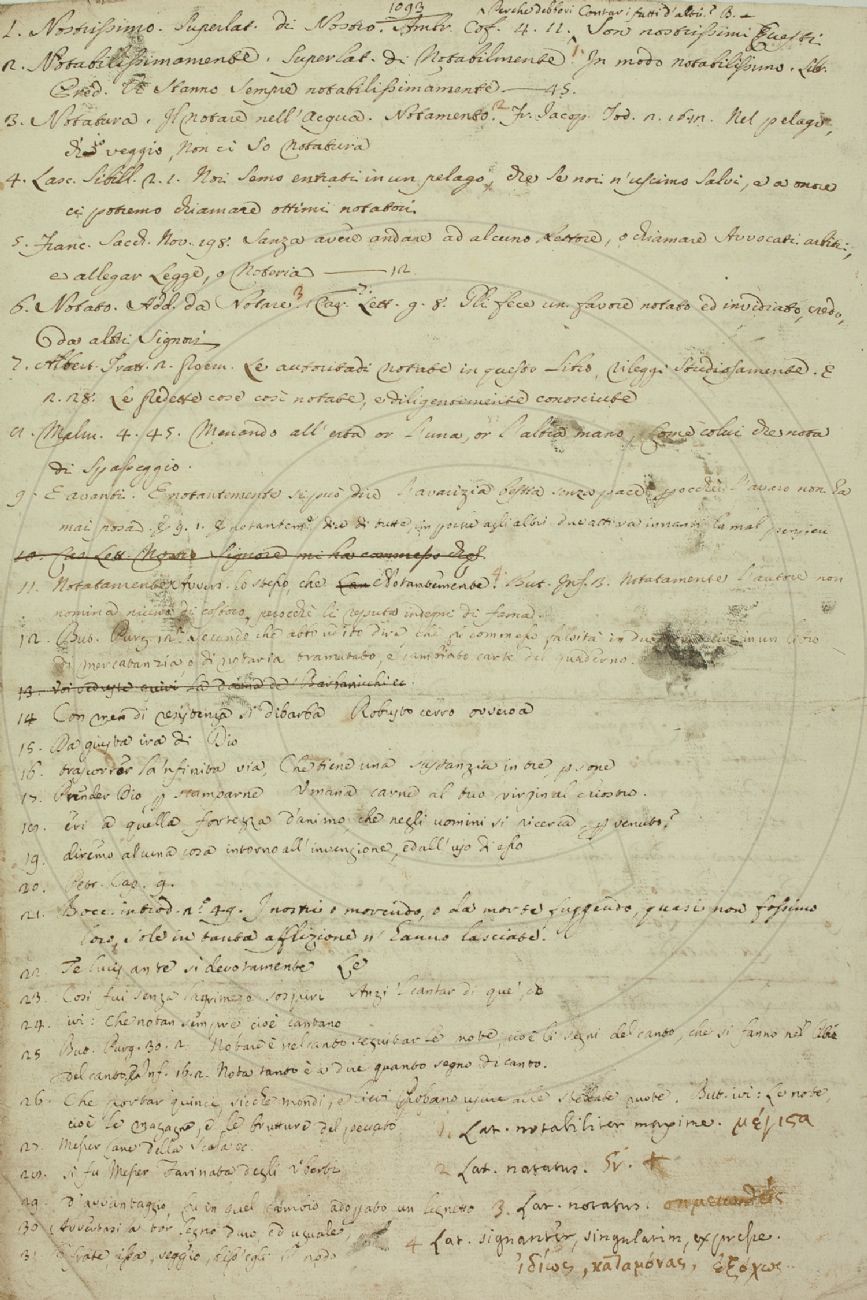 1093
Perche debbovi Contar i fatti d'altri? B.
1. Nostrissimo. Superlat. di Nostro. Ambr. Cof. 4. 11. Son nostrissimi Questi
2. Notabilissimamente. Superlat. di Notabilmente 1. In modo notabilissimo. Lib.
Pred. Stanno sempre notabilissimamente — 45.
3. Notatura. Il notare nell'Acqua. Notamento. 2 Fr. Jacop. Tod. 2. Nel pelago,
ch'io veggio, Non ci so Notatura
4. Lasc. Sibill. 2. 1. Noi semo entrati in un pelago, che se noi n'uscimo salvi, e a onore
ci potremo chiamare ottimi notatori.
5. Franc. Sacch. Nov. 198. Sanza avere andare ad alcuno Lettore, o chiamare Avvocati
e allegar Legge, o Notoria — 12
6. Notato. Add. da Notare 3. Car. Lett. 9. 8. Gli fece un favore notato ed invidiato, credo,
da altri Signori
7. Albert. Tratt. 2. proem. Le autoritadi Notate in questo Libro, rileggi studiosamente. E
2. 28. Le predette cose così notate, e diligentemente conosciute
8. Malm. 4. 45. Menando all'erta or l'una, or l'altra mano, Come colui che nota
di Spasseggio.
9. E avanti. E notantemente si può dire l'avarizia bestia senza pace, perocchè l'avaro non ha
mai posa.
10. Car. Lett. Nostro Signore mi ha commesso
11. Notatamente. Avverb. lo stesso, che Notantemente. 4 But. Inf. 3. Notatamente l'autore non
nomina niuno di costoro, perocchè li reputa indegni di fama.
12. But. Purg. 12. Secondo che abbo udito dire che fu commesso falsità in due
di mercatanzia, o di notaria tramutato, e cambiato carte del quaderno.
13. Voi vedeste quivi la Dama de' Barbanicchi ec.
14 Con men di resistenza si dibarba Robusto cerro ovvero a
15. Da giusta ira di Dio
16. trascorrer la 'nfinita via, Che tiene una sustanzia in tre psone
17. Prender Dio p scamparne Umana carne al tuo virginal chiostro.
18. eri a quella fortezza d'animo che negli uomini si ricerca p venuto?
19. diremo alcuna cosa intorno all'invenzione, ed all'uso di esso
20. Petr. Cap. 9.
21. Bocc. introd. n.° 49. I nostri o morendo, o da morte fuggendo, quasi non fossimo
loro, sole in tanta afflizione n'hanno lasciate.
22. Te lucis ante sì devotamente Le
23. Così fui senza lagrime e sospiri Anzi 'l cantar di que', ch
24. ivi: Che notan sempre cioè cantano
25 But. Purg. 30. 2. Notare è nel canto seguitar le note, cioè li segni del canto, che si fanno nel libro
del canto. Inf. 16. 2. Nota tanto è a dire quanto segno di canto.
26. Che porbar quinci, sicchè mondi, e lievi Possano uscire alle stellate ruote. But. ivi: Le note,
cioè le magagne, e le brutture del peccato
27. Messer Cane della Scala ec.
28. Si fu Messer Farinata degli Uberti
29. D'avvantaggio, fu in quel
30. Avventasi a tor segno
31. O frate issa, veggio, diss'egli il nodo
1. Lat. notabiliter maxime. μέγιστα
2 Lat. natatus. Gr. +
3. Lat. notatus.
4 Lat. signanter, singulatim, expresse.
ἰδίως, καταμόνας, ἐξόχως.